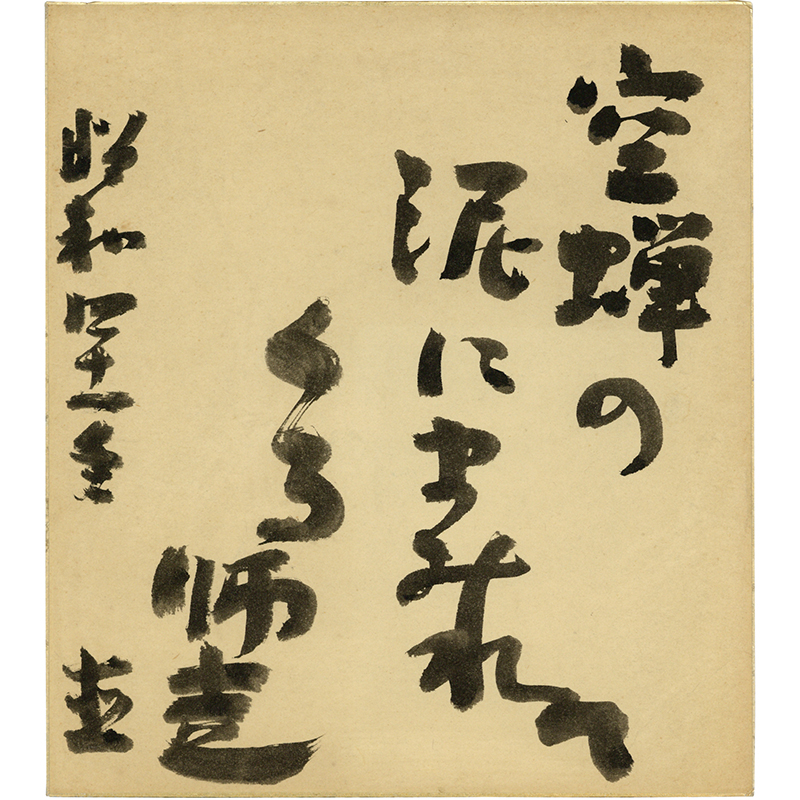 空蝉の
泥にまみれつ
くる師走
昭和四十一年